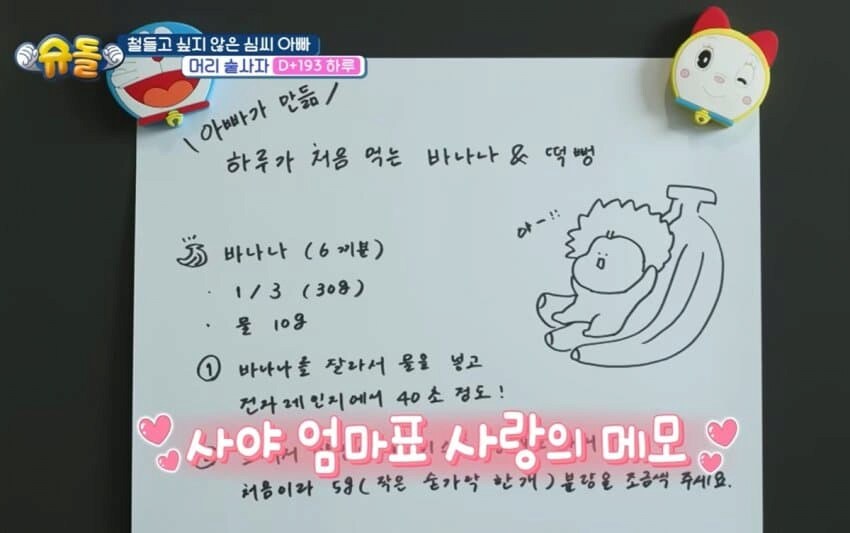 슈돌
철들고 싶지 않은 심씨 아빠
머리 술사자 D+193 하루
\아빠가 만듦/
하루가 처음 먹는 바나나 & 떡뻥
바나나 (6개분)
· 1/3 (30g)
· 물 10g
야-!!
① 바나나를 잘라서 물을 넣고
전자레인지에서 40초 정도!
사야 엄마표 사랑의 메모
처음이라 5g(작은 숟가락 한개) 분량을 조금씩 주세요.